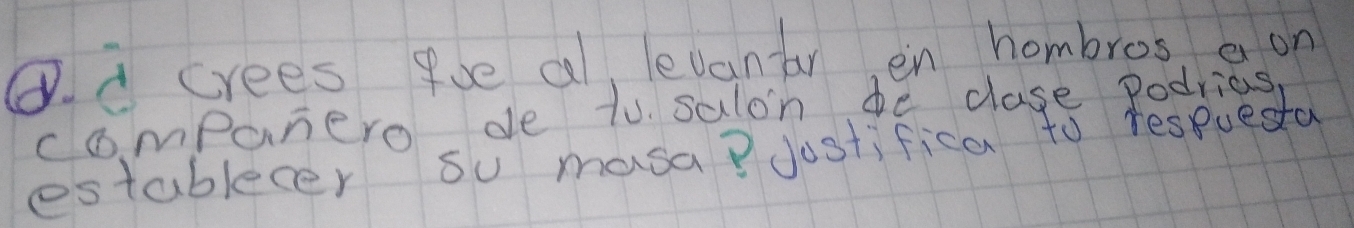 a. ¿ crees que al, levantar en hombros a on
compañero de tu. salón de clase podrias,
establecer su masa? Justifica tu respuesta